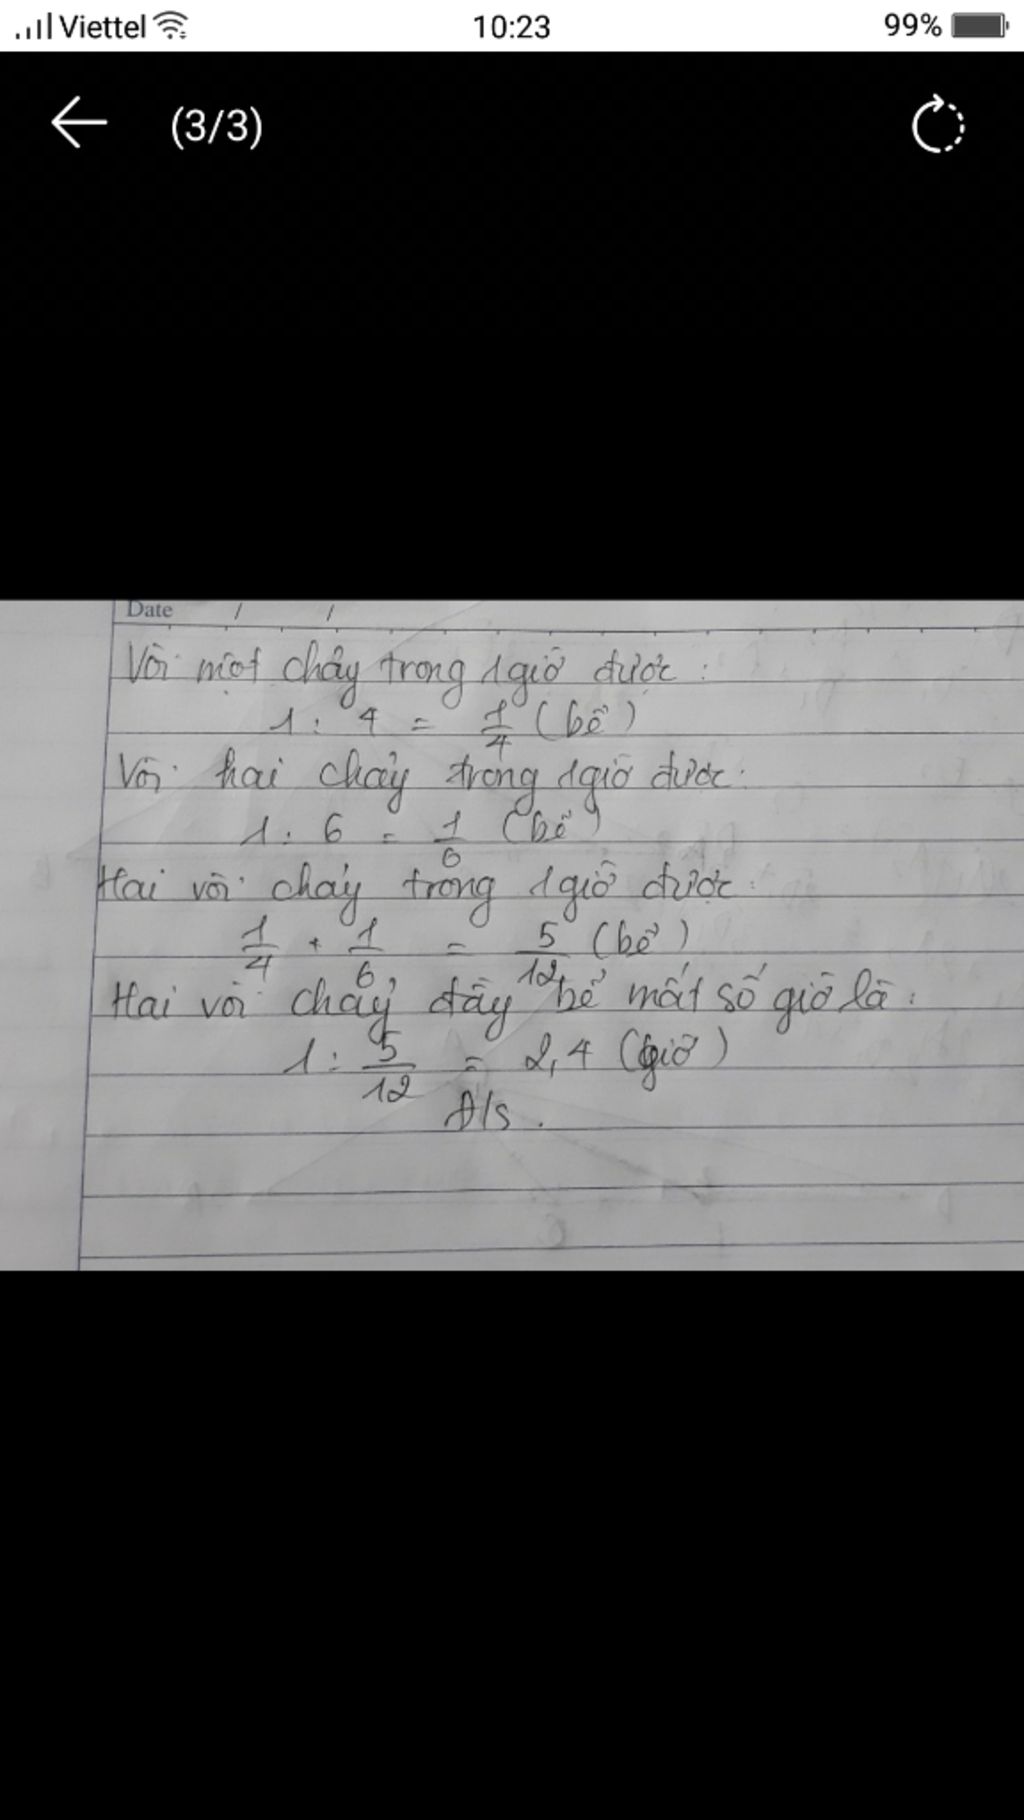 Viettel 10:23 99%
(3/3)
Date / /
Vòi một chảy trong 1 giờ được:
1 : 4 = 1/4 (bể)
Vòi hai chảy trong 1 giờ được:
1 : 6 = 1/6 (bể)
Hai vòi chảy trong 1 giờ được:
1/4 + 1/6 = 5/12 (bể)
Hai vòi chảy đầy bể mất số giờ là:
1 : 5/12 = 2,4 (giờ)
Đ/s.